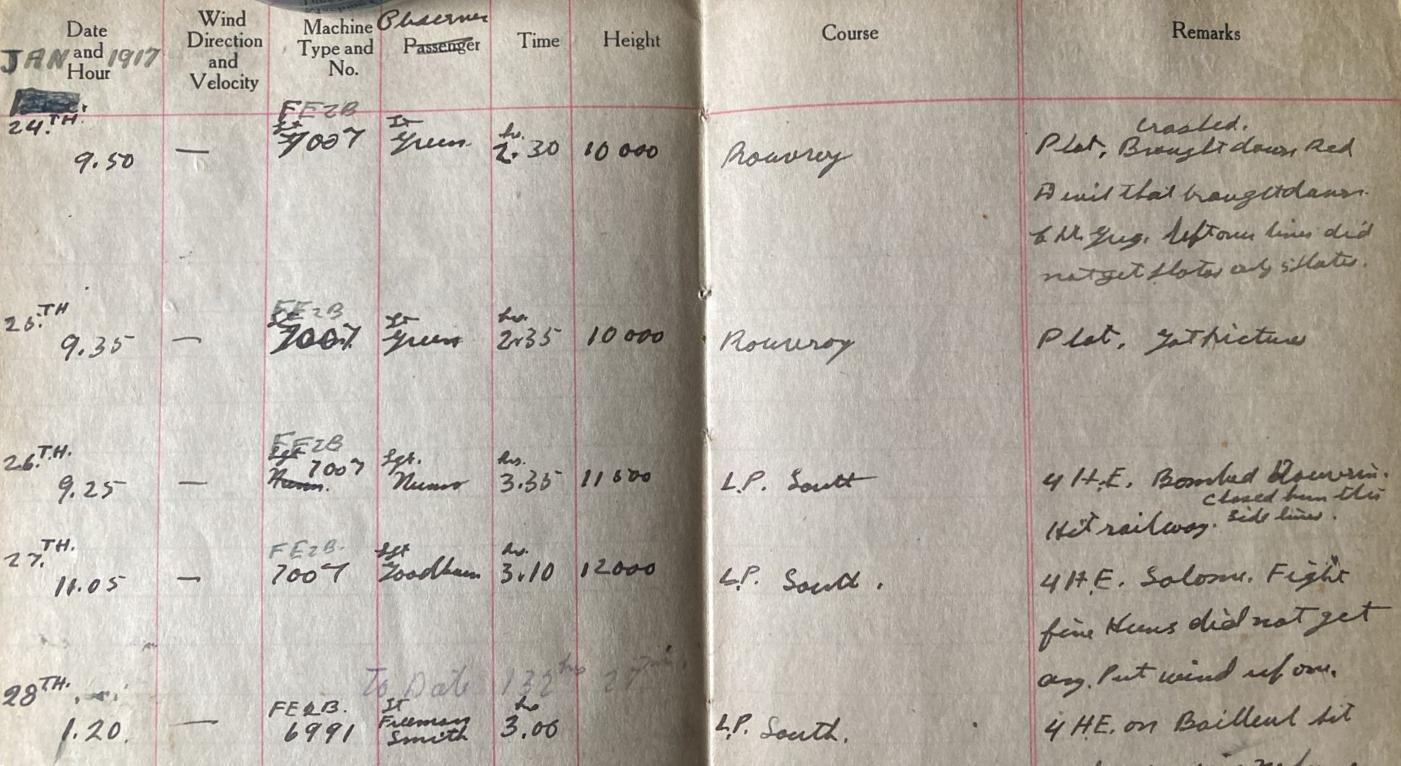 Date and Hour Wind Direction and Velocity Machine Type and No. Observer Passenger Time Height Course Remarks
JAN 1917
24.TH. FE2B Lt hr. Crashed.
9.50 — 7007 Green 2.30 10 000 Rouvroy Phot, Brought down Red
Devil that brought down
left our lines did
not get photos only 5 plates.
25.TH FE2B Lt hr.
9.35 — 7007 Green 2.35 10 000 Rouvroy Phot, Got picture
26.TH. FE2B Sgt. hrs.
9.25 — 7007 Nunn 3.35 11 500 L.P. South 4 H.E. Bombed
Closed hun this
Hit railway. side lines.
27.TH. FE2B. Sgt hr.
11.05 — 7007 3.10 12000 L.P. South. 4 H.E. Salome. Fight
five Huns did not get
any. Put wind up one.
To Date 132 hrs 27 min.
28TH. FE2B. Lt hr
1.20. — 6991 Freeman Smith 3.00 L.P. South. 4 H.E. on Bailleul hit